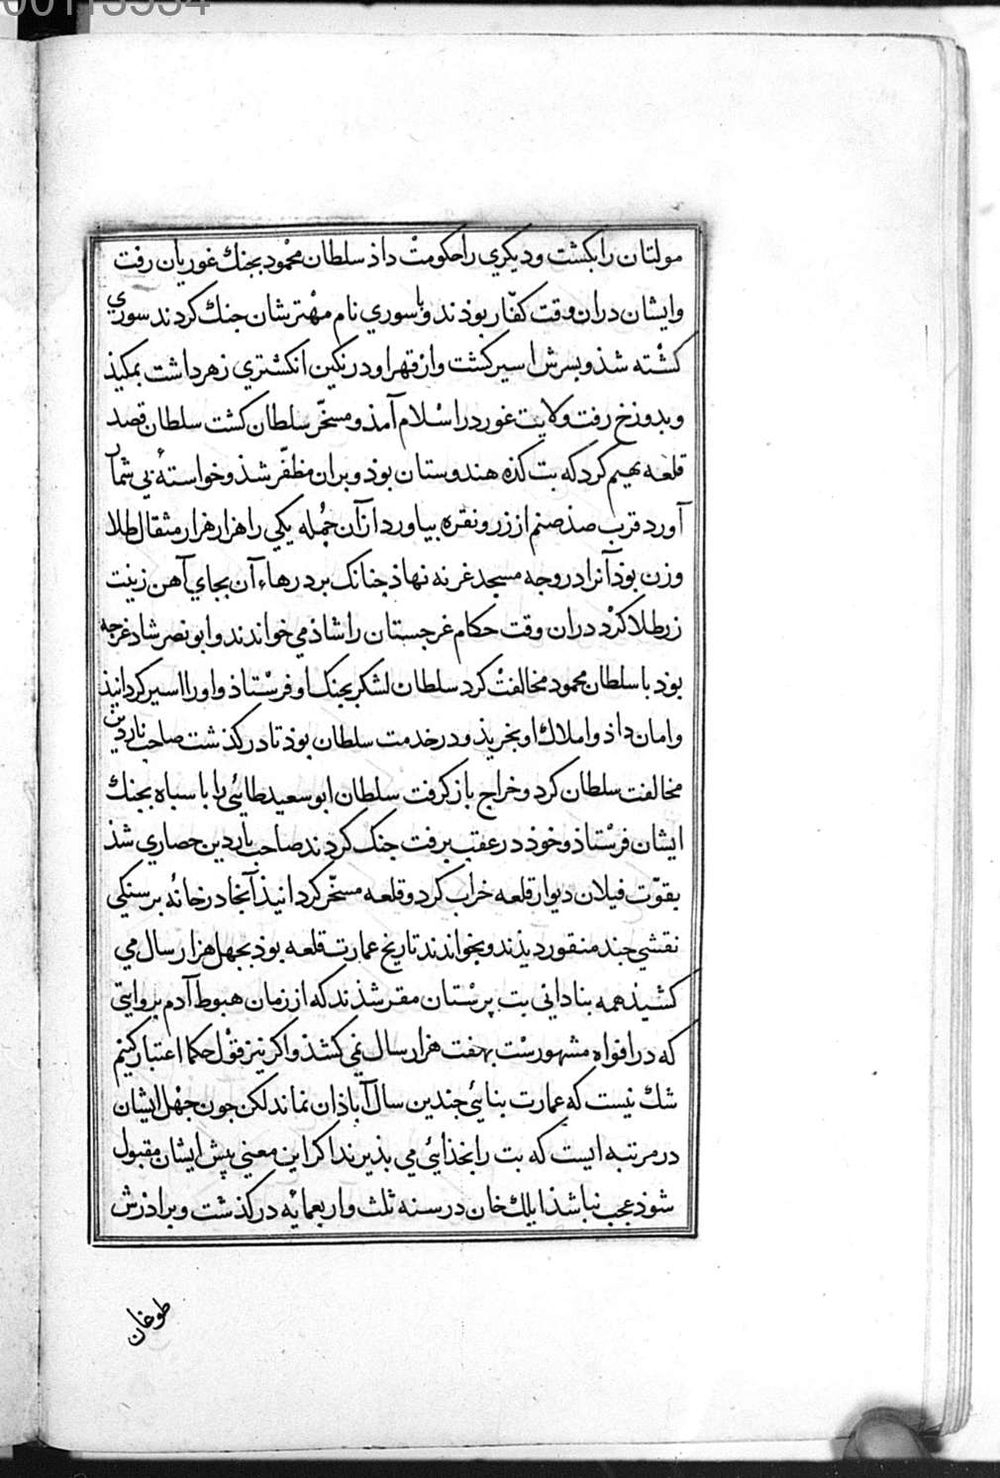 00113534
مولتان را بکشت و دیکری را حکومت داذ سلطان محمود بجنک غوریان رفت
و ایشان دران وقت کفّار بوذند و با سوری نام مهترشان جنک کردند سوری
کشته شذ و بسرش اسیر کشت و از قهر او در نکین انکشتری زهر داشت بمکیذ
و بدوزخ رفت و ولایت غور در اسلام آمذ و مسخّر سلطان کشت سلطان قصد
قلعه بهیم کرد که بت کذه هندوستان بوذ و بران مظفّر شذ و خواستهٔ بی شمار
آورد قرب صذ صنم از زر و نقره بیاورد از آن جمله یکی را هزار هزار مثقال طلا
وزن بوذ آنرا در وجه مسجد غزنه نهاذ چنانک بر درهاء آن بجای آهن زینت
زر طلا کرد دران وقت حکام غرجستان را شاذ می خواندند و ابو نصر شاد غرجه
بوذ با سلطان محمود مخالفت کرد سلطان لشکر بجنک او فرستاذ و او را اسیر کردانیذ
و امان داذ و املاک او بخریذ و در خدمت سلطان بوذ تا در کذشت صاحب ناردین
مخالفت سلطان کرد و خراج باز کرفت سلطان ابو سعید طائی را با سباه بجنک
ایشان فرستاذ و خوذ در عقب برفت جنک کردند صاحب ناردین حصاری شذ
بقوّت فیلان دیوار قلعه خراب کرد و قلعه مسخّر کردانیذ آنجا در خانهٔ بر سنکی
نقشی جند منقور دیذند و بخواندند تاریخ عمارت قلعه بوذ بجهل هزار سال می
کشیذ همه بنادانی بت پرستان مقر شذند که از زمان هبوط آدم بروایتی
که در افواه مشهورست بهفت هزار سال نمی کشذ و اکر نیز قول حکما اعتبار کنیم
شک نیست که عمارت بنائی جندین سال آباذان نماند لکن جون جهل ایشان
در مرتبه ایست که بت را بخذائی می بذیرند اکر این معنی پیش ایشان مقبول
شوذ عجب نباشذ ایلک خان در سنه ثلث و اربعمایه در کذشت و براذرش
طوخان